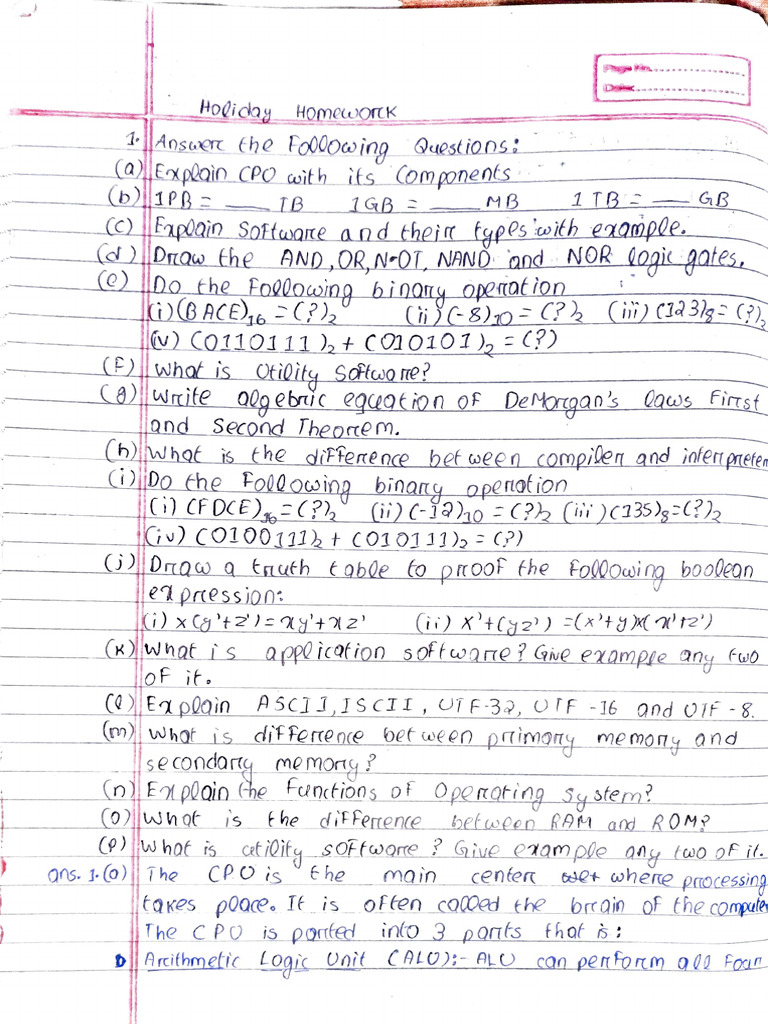 Page No.
Date
Holiday Homework
1. Answer the Following Questions:
(a) Explain CPU with its Components
(b) 1PB = ___ TB 1GB = ___ MB 1 TB = ___ GB
(c) Explain Software and their types with example.
(d) Draw the AND, OR, NOT, NAND and NOR logic gates.
(e) Do the Following binary operation :
(i) (BACE)₁₆ = (?)₂ (ii) (-8)₁₀ = (?)₂ (iii) (123)₈ = (?)₂
(iv) (0110111)₂ + (010101)₂ = (?)
(f) What is Utility Software?
(g) Write algebric equation of DeMorgan's laws First
and Second Theorem.
(h) What is the difference between compiler and interpreter
(i) Do the Following binary operation
(i) (FDCE)₁₆ = (?)₂ (ii) (-12)₁₀ = (?)₂ (iii) (135)₈ = (?)₂
(iv) (0100111)₂ + (010111)₂ = (?)
(j) Draw a truth table to proof the following boolean
expression:
(i) x(y'+z') = xy'+xz' (ii) x'+(yz') = (x'+y)x(x'+z')
(k) What is application software? Give example any two
of it.
(l) Explain ASCII, ISCII, UTF-32, UTF-16 and UTF-8.
(m) What is difference between primary memory and
secondary memory?
(n) Explain the functions of Operating System?
(o) What is the difference between RAM and ROM?
(p) What is utility software? Give example any two of it.
ans. 1.(a) The CPU is the main center where processing
takes place. It is often called the brain of the computer
The CPU is parted into 3 parts that is:
Arithmetic Logic Unit (ALU):- ALU can perform all four